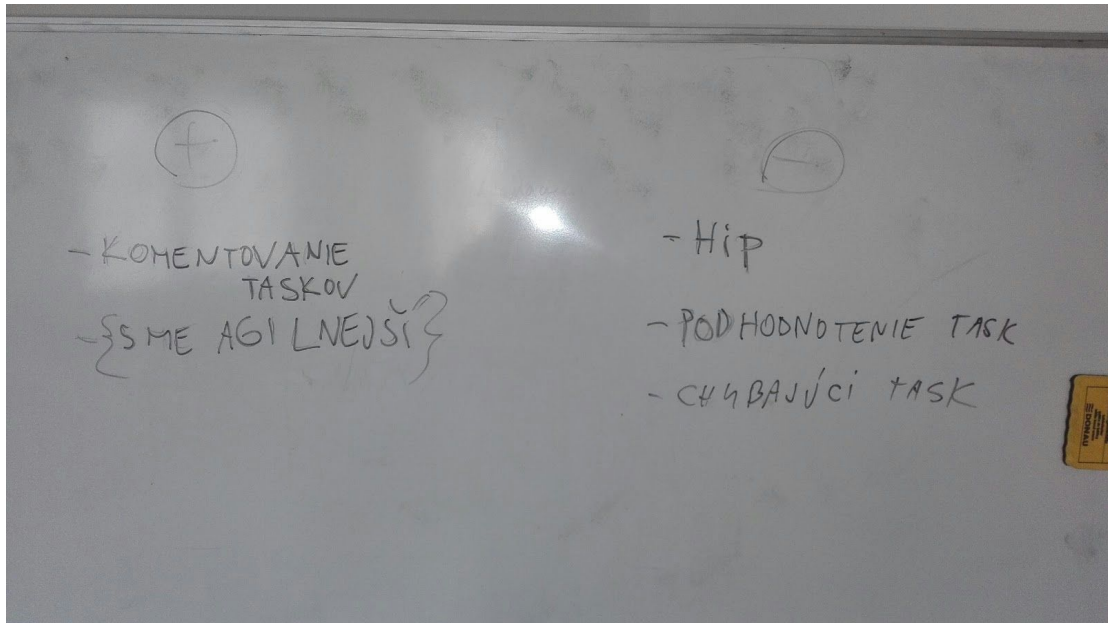 +
- KOMENTOVANIE
TASKOV
- {SME AGILNEJŠÍ}
-
- Hip
- PODHODNOTENIE TASK
- CHÝBAJÚCI TASK
DONAU